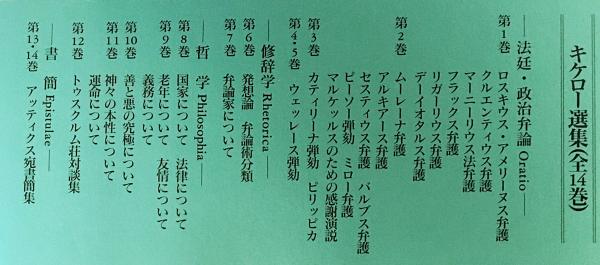 キケロー選集〈全14巻〉
――法廷・政治弁論 Oratio――
第1巻 ロスキウス・アメリーヌス弁護
クルエンティウス弁護
マーニーリウス法弁護
フラックス弁護
リガーリウス弁護
デーイオタルス弁護
第2巻 ムーレーナ弁護
アルキアース弁護
セスティウス弁護 バルブス弁護
ピーソー弾劾 ミロー弁護
マルケッルスのための感謝演説
第3巻 カティリーナ弾劾 ピリッピカ
第4・5巻 ウェッレース弾劾
――修辞学 Rhetorica――
第6巻 発想論 弁論術分類
第7巻 弁論家について
――哲 学 Philosophia――
第8巻 国家について 法律について
第9巻 老年について 友情について
義務について
第10巻 善と悪の究極について
第11巻 神々の本性について
運命について
第12巻 トゥスクルム荘対談集
――書 簡 Epistulae――
第13・14巻 アッティクス宛書簡集